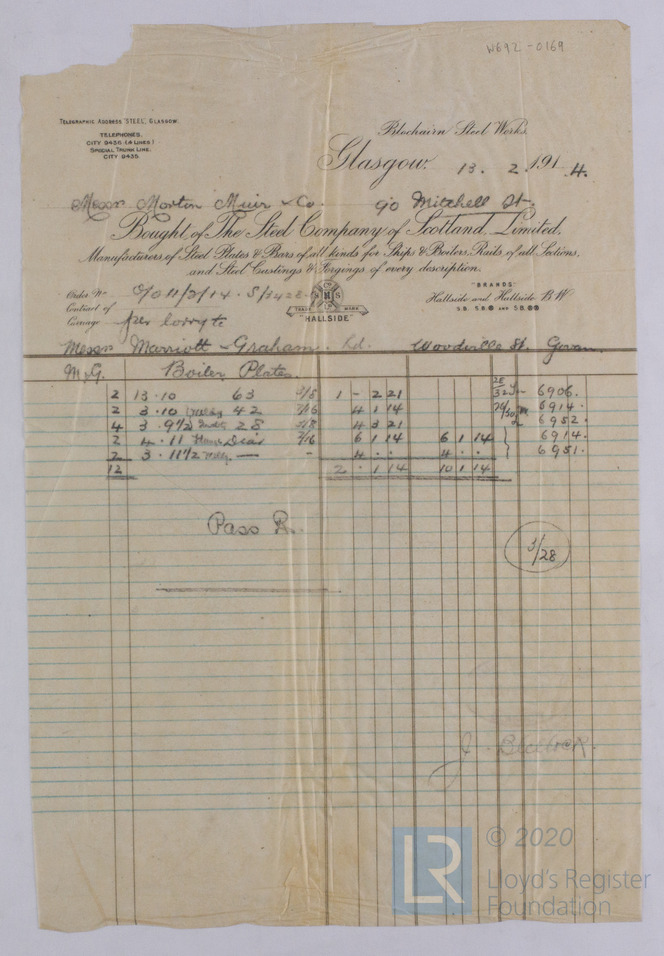 W692-0169
TELEGRAPHIC ADDRESS "STEEL", GLASGOW.
TELEPHONES.
CITY 9435 (4 LINES)
SPECIAL TRUNK LINE.
CITY 9435
Blochairn Steel Works.
Glasgow. 13. 2. 1914.
Messrs Morton Muir & Co. 90 Mitchell St.
Bought of The Steel Company of Scotland, Limited.
Manufacturers of Steel Plates & Bars of all kinds for Ships & Boilers, Rails of all Sections,
and Steel Castings & Forgings of every description.
"BRANDS"
Order No
Contract of
Carriage per lorry
TRADE MARK
"HALLSIDE"
Hallside and Hallside B.W
Messrs Marriott & Graham. Ld. Woodville St. Govan.
M.G. Boiler Plates.
2 13.10 63 5/8 1 - 2 21 6906.
2 3.10 42 7/16 4 1 14 6914.
4 3.9½ 28 5/8 4 3 21 6952.
2 4.11 Diar 7/16 6 1 14 6 1 14 6914.
2 3.11½ — - 4 . . 4 . . 6951.
12 2 . 1 14 10 1 14
Pass
3/28
© 2020
LR
Lloyd's Register
Foundation